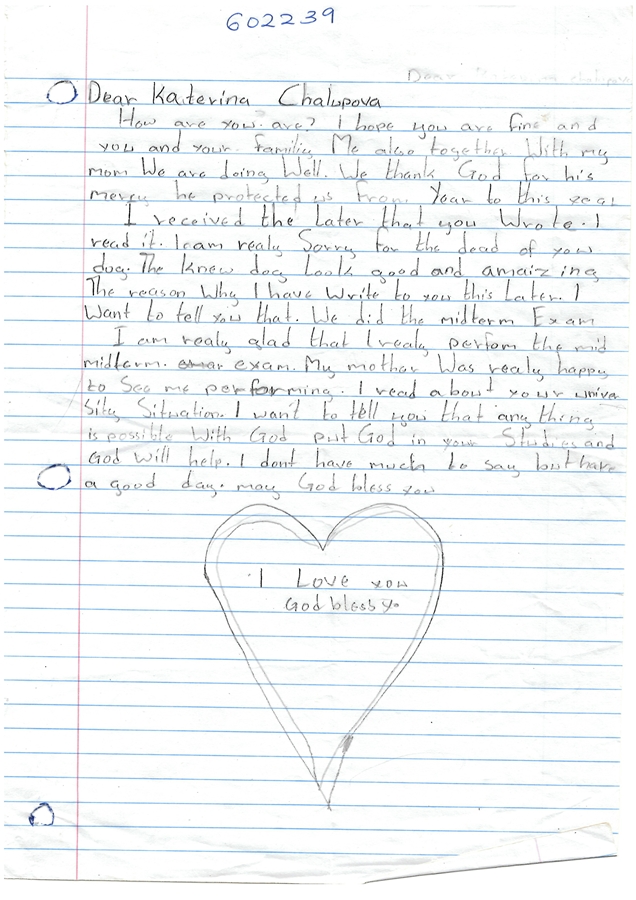 602239
Dear
Dear Katerina Chalupova
How are you are? I hope you are fine and
you and your familiy Me also together With my
mom We are doing Well. We thank God for his
mercy he protected us from Year to this year
I received the Later that you Wrote. I
read it. I am realy Sorry for the dead of you
dog. The knew dog Look good and amaizing
The reason Why I have Write to you this Later. I
Want to tell you that. We did the midterm Exam
I am realy glad that I realy perfom the mid
midterm. exam. My mother Was realy happy
to See me performing. I read about your univa
Sity Situation. I want to tell you that any thing
is possible With God put God in your Studies and
God Will help. I dont have much to say but have
a good day. may God bless you
I Love you
God bless yo